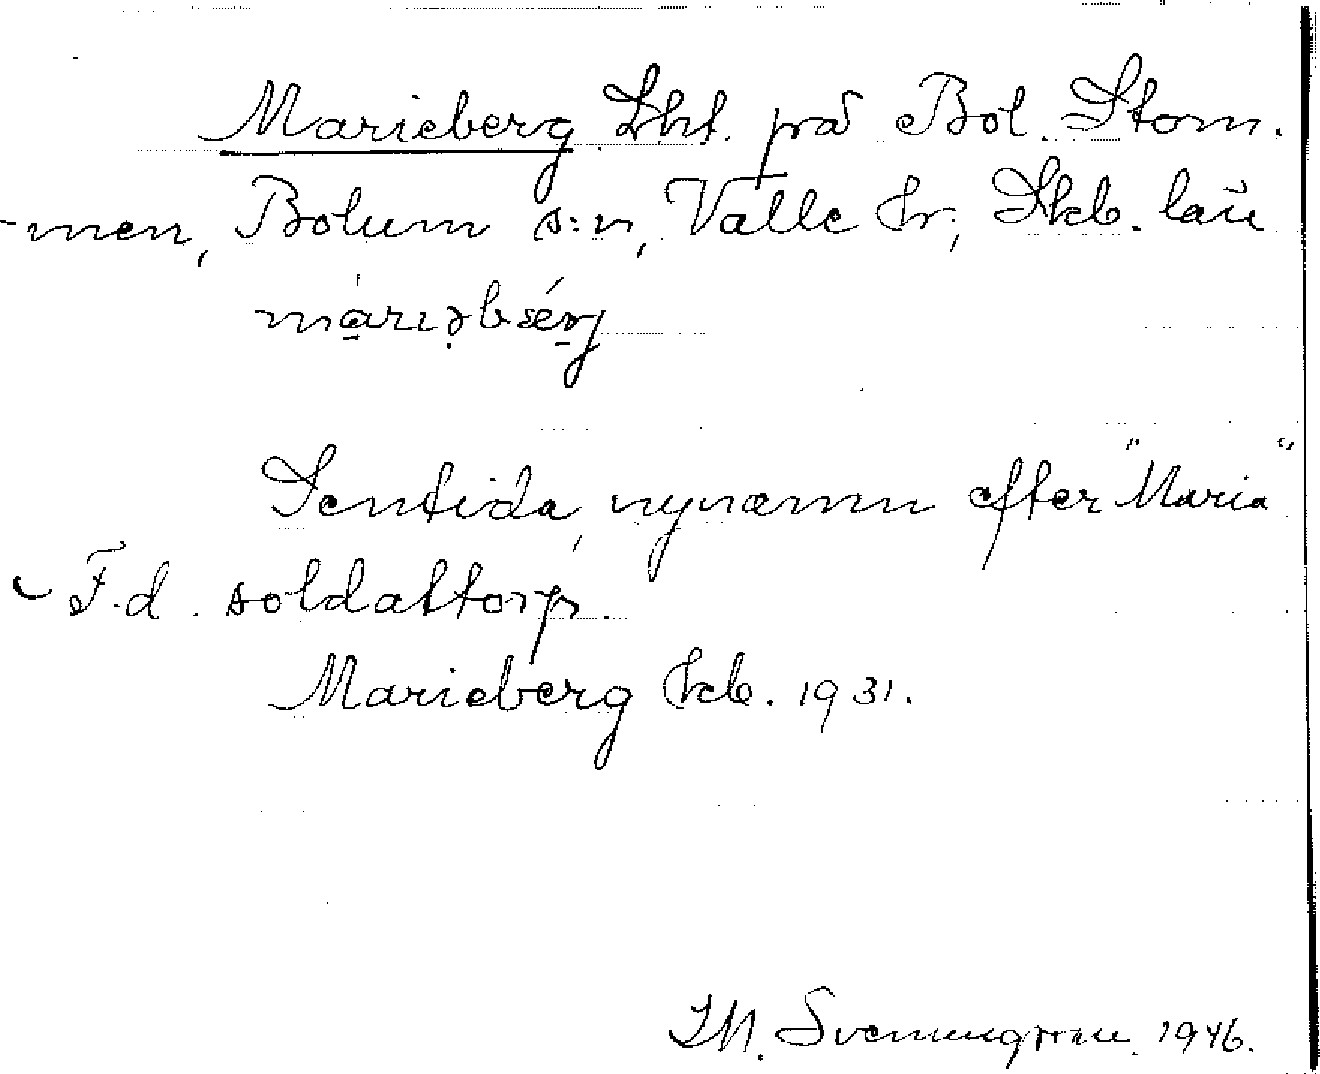 Marieberg Lht. på Bol. Stom.
-men, Bolum s:n, Valle hr; Skb. län
Sentida, nynamn efter "Maria"
F.d. soldattorp.
Marieberg kb. 1931.
1946.